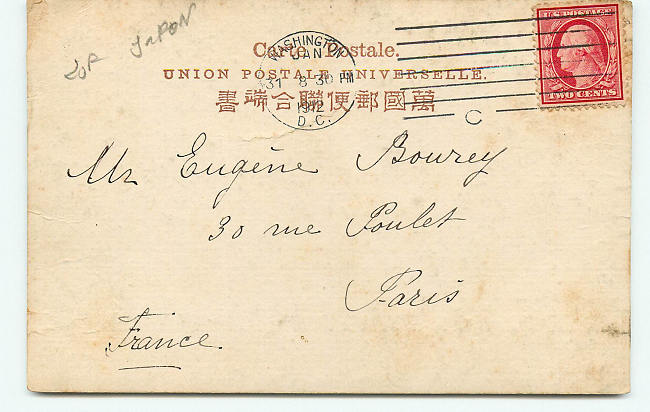 JAPON
Carte Postale.
UNION POSTALE UNIVERSELLE.
書端合聯便郵國萬
WASHINGTON
JAN
31 8 30 PM
1912
D.C.
C
TWO CENTS
Mr Eugène Bourey
30 rue Poulet
Paris
France.